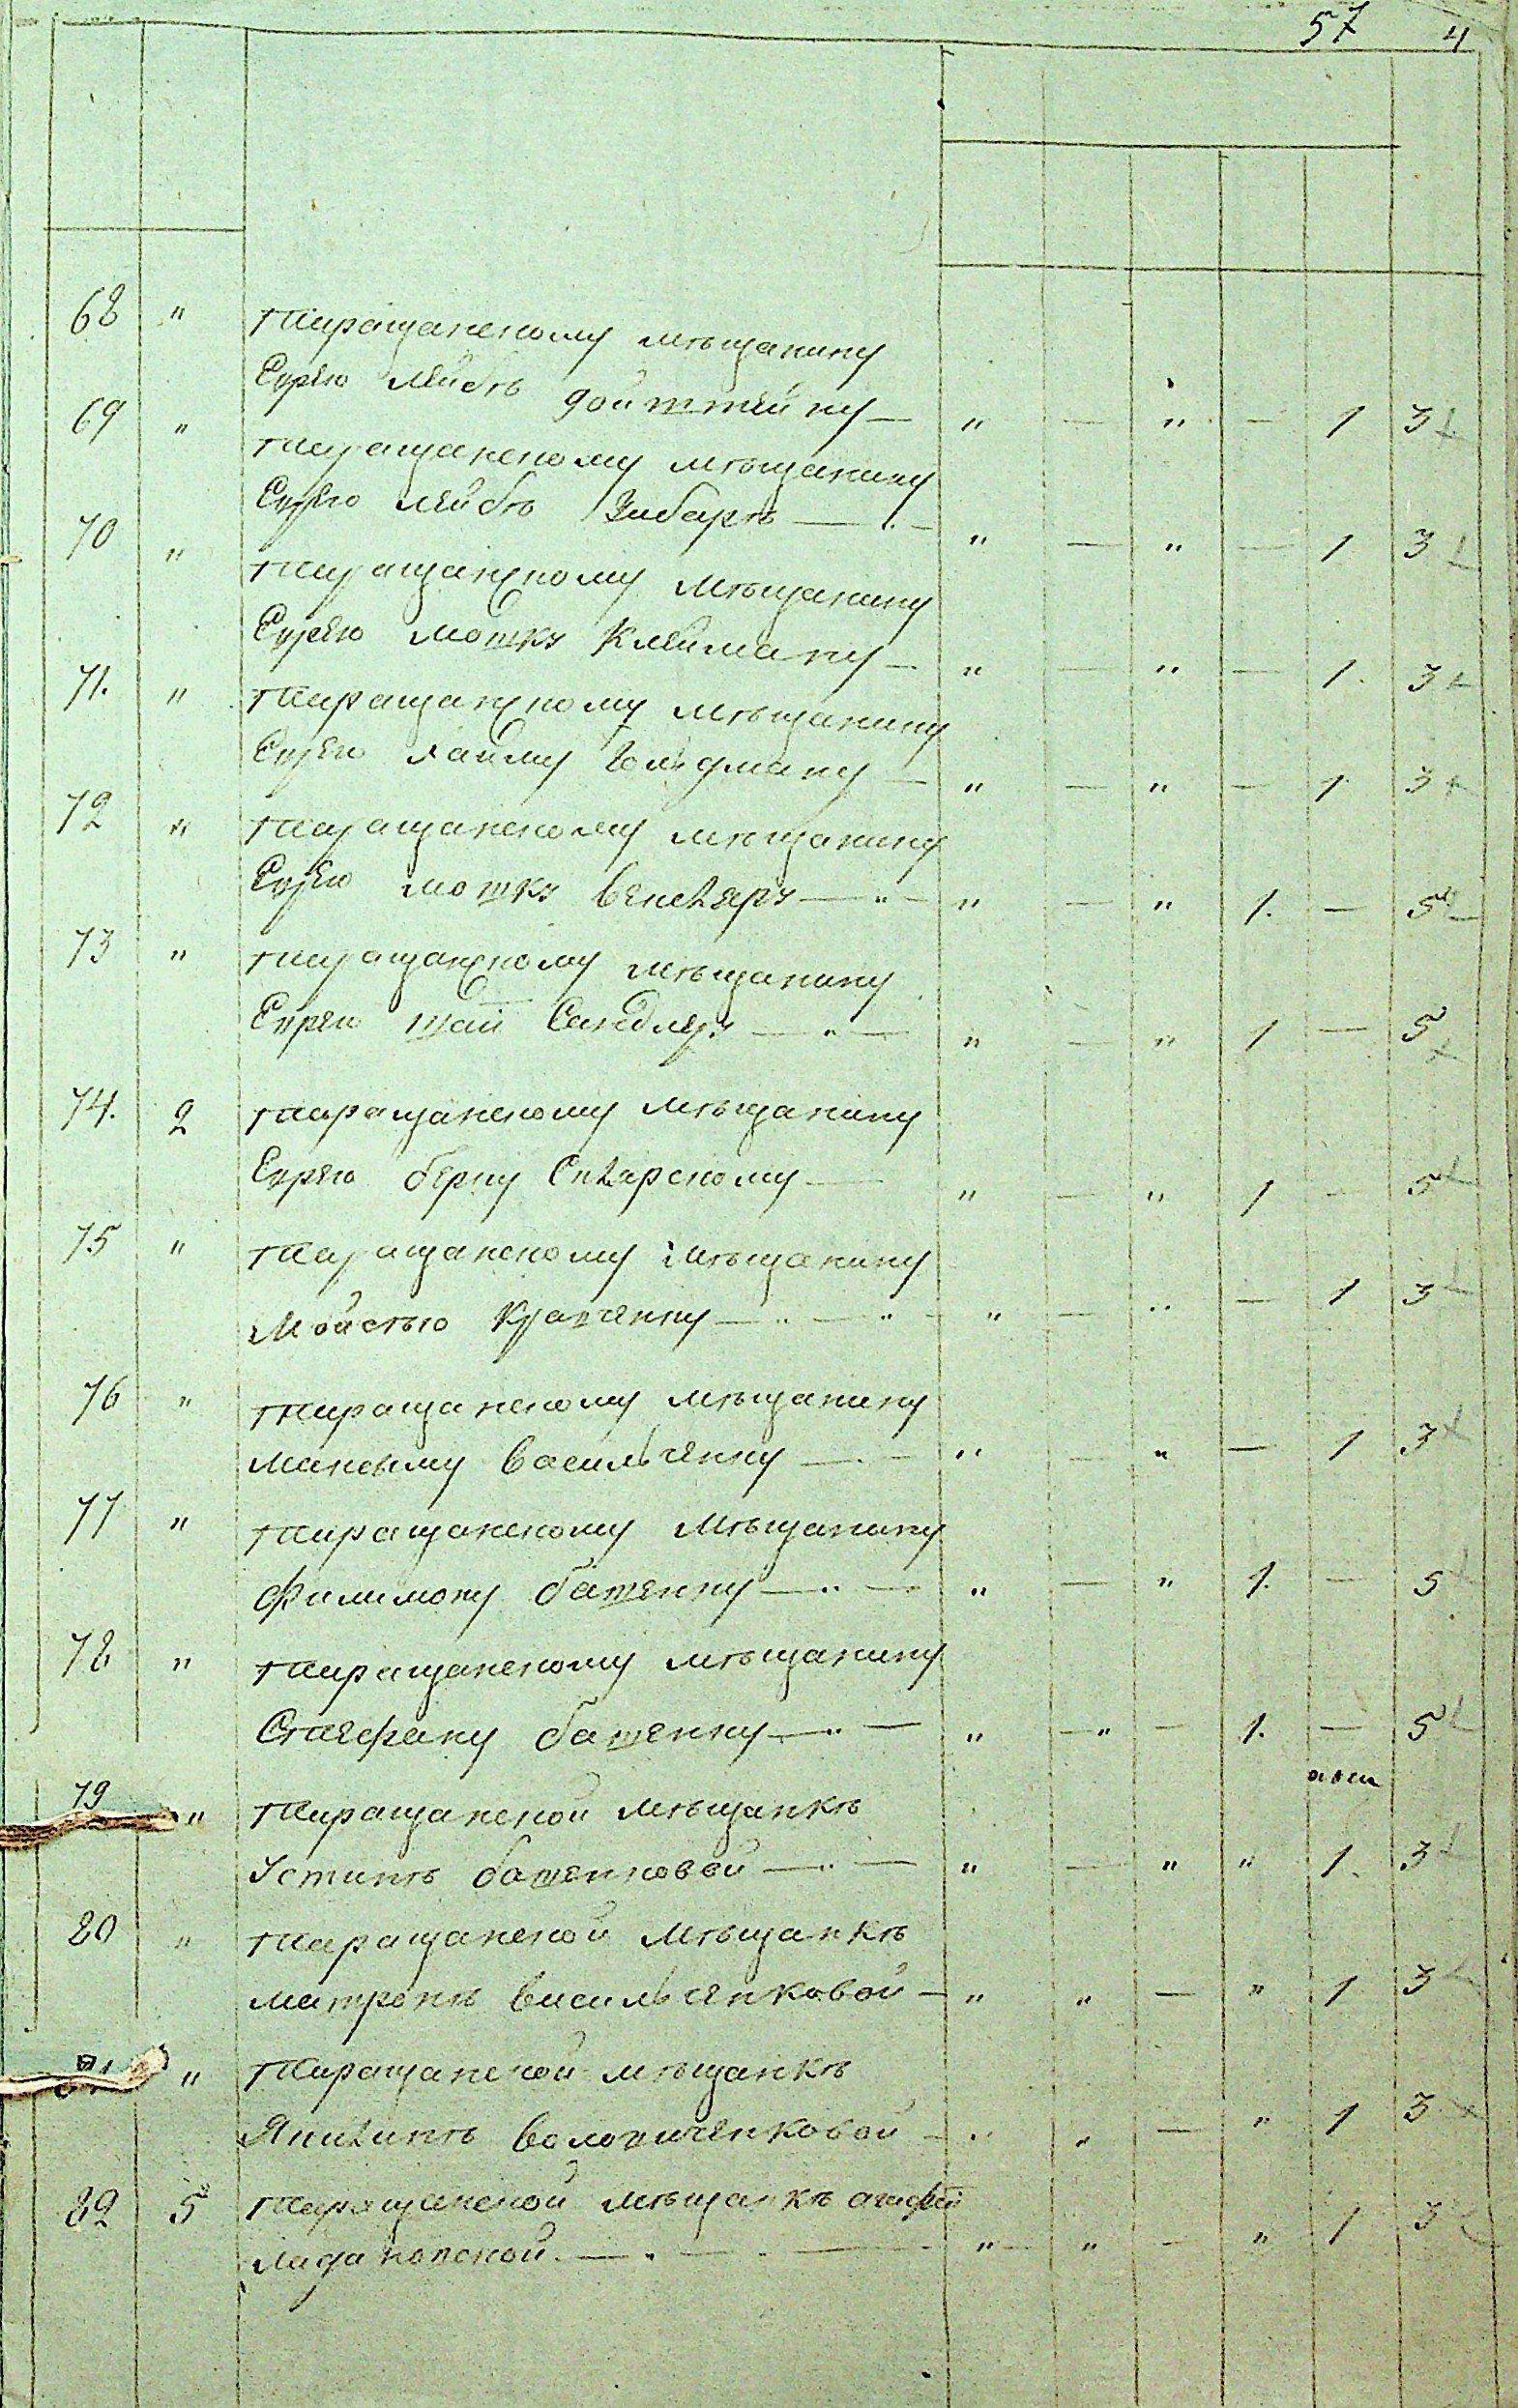 57 4
68 " Таращанскому мѣщанину
Еврею Лейбѣ Дойтшейну — " — " — 1 3
69 " Таращанскому мѣщанину
Еврею Лейбѣ Зибарѣ — " — " — " — 1 3
70 " Таращанскому мѣщанину
Еврею Мошку Клейману — " — " — 1. 3
71. " Таращанскому мѣщанину
Еврею Хаиму Гольдману — " — " — 1 3
72 " Таращанскому мѣщанину
Еврею Мошку — " — " — " 1. — 5
73 " Таращанскому мѣщанину
Еврею Шаи Сандлеру — " — " — " 1 — 5
74. 2 Таращанскому мѣщанину
Еврею Берку — " — " 1 — 5
75 " Таращанскому мѣщанину
Мойсѣю Кравченку — " — " — " — " — 1 3
76 " Таращанскому мѣщанину
Максыму Васильченку — " — " — 1 3
77 " Таращанскому мѣщанину
Филимону Башенку — " — " — " 1. — 5
78 " Таращанскому мѣщанину
Стефану Башенку — " — " — " — 1. — 5
79 " Таращанской мѣщанкѣ
Устинѣ Башенковой — " — " — " " 1. 3
80 " Таращанской мѣщанкѣ
Матронѣ Васильченковой — " " — " 1 3
" Таращанской мѣщанкѣ
— " " — " 1 3
82 5 Таращанской мѣщанкѣ Агафіи
— " — " — " — " 1 3